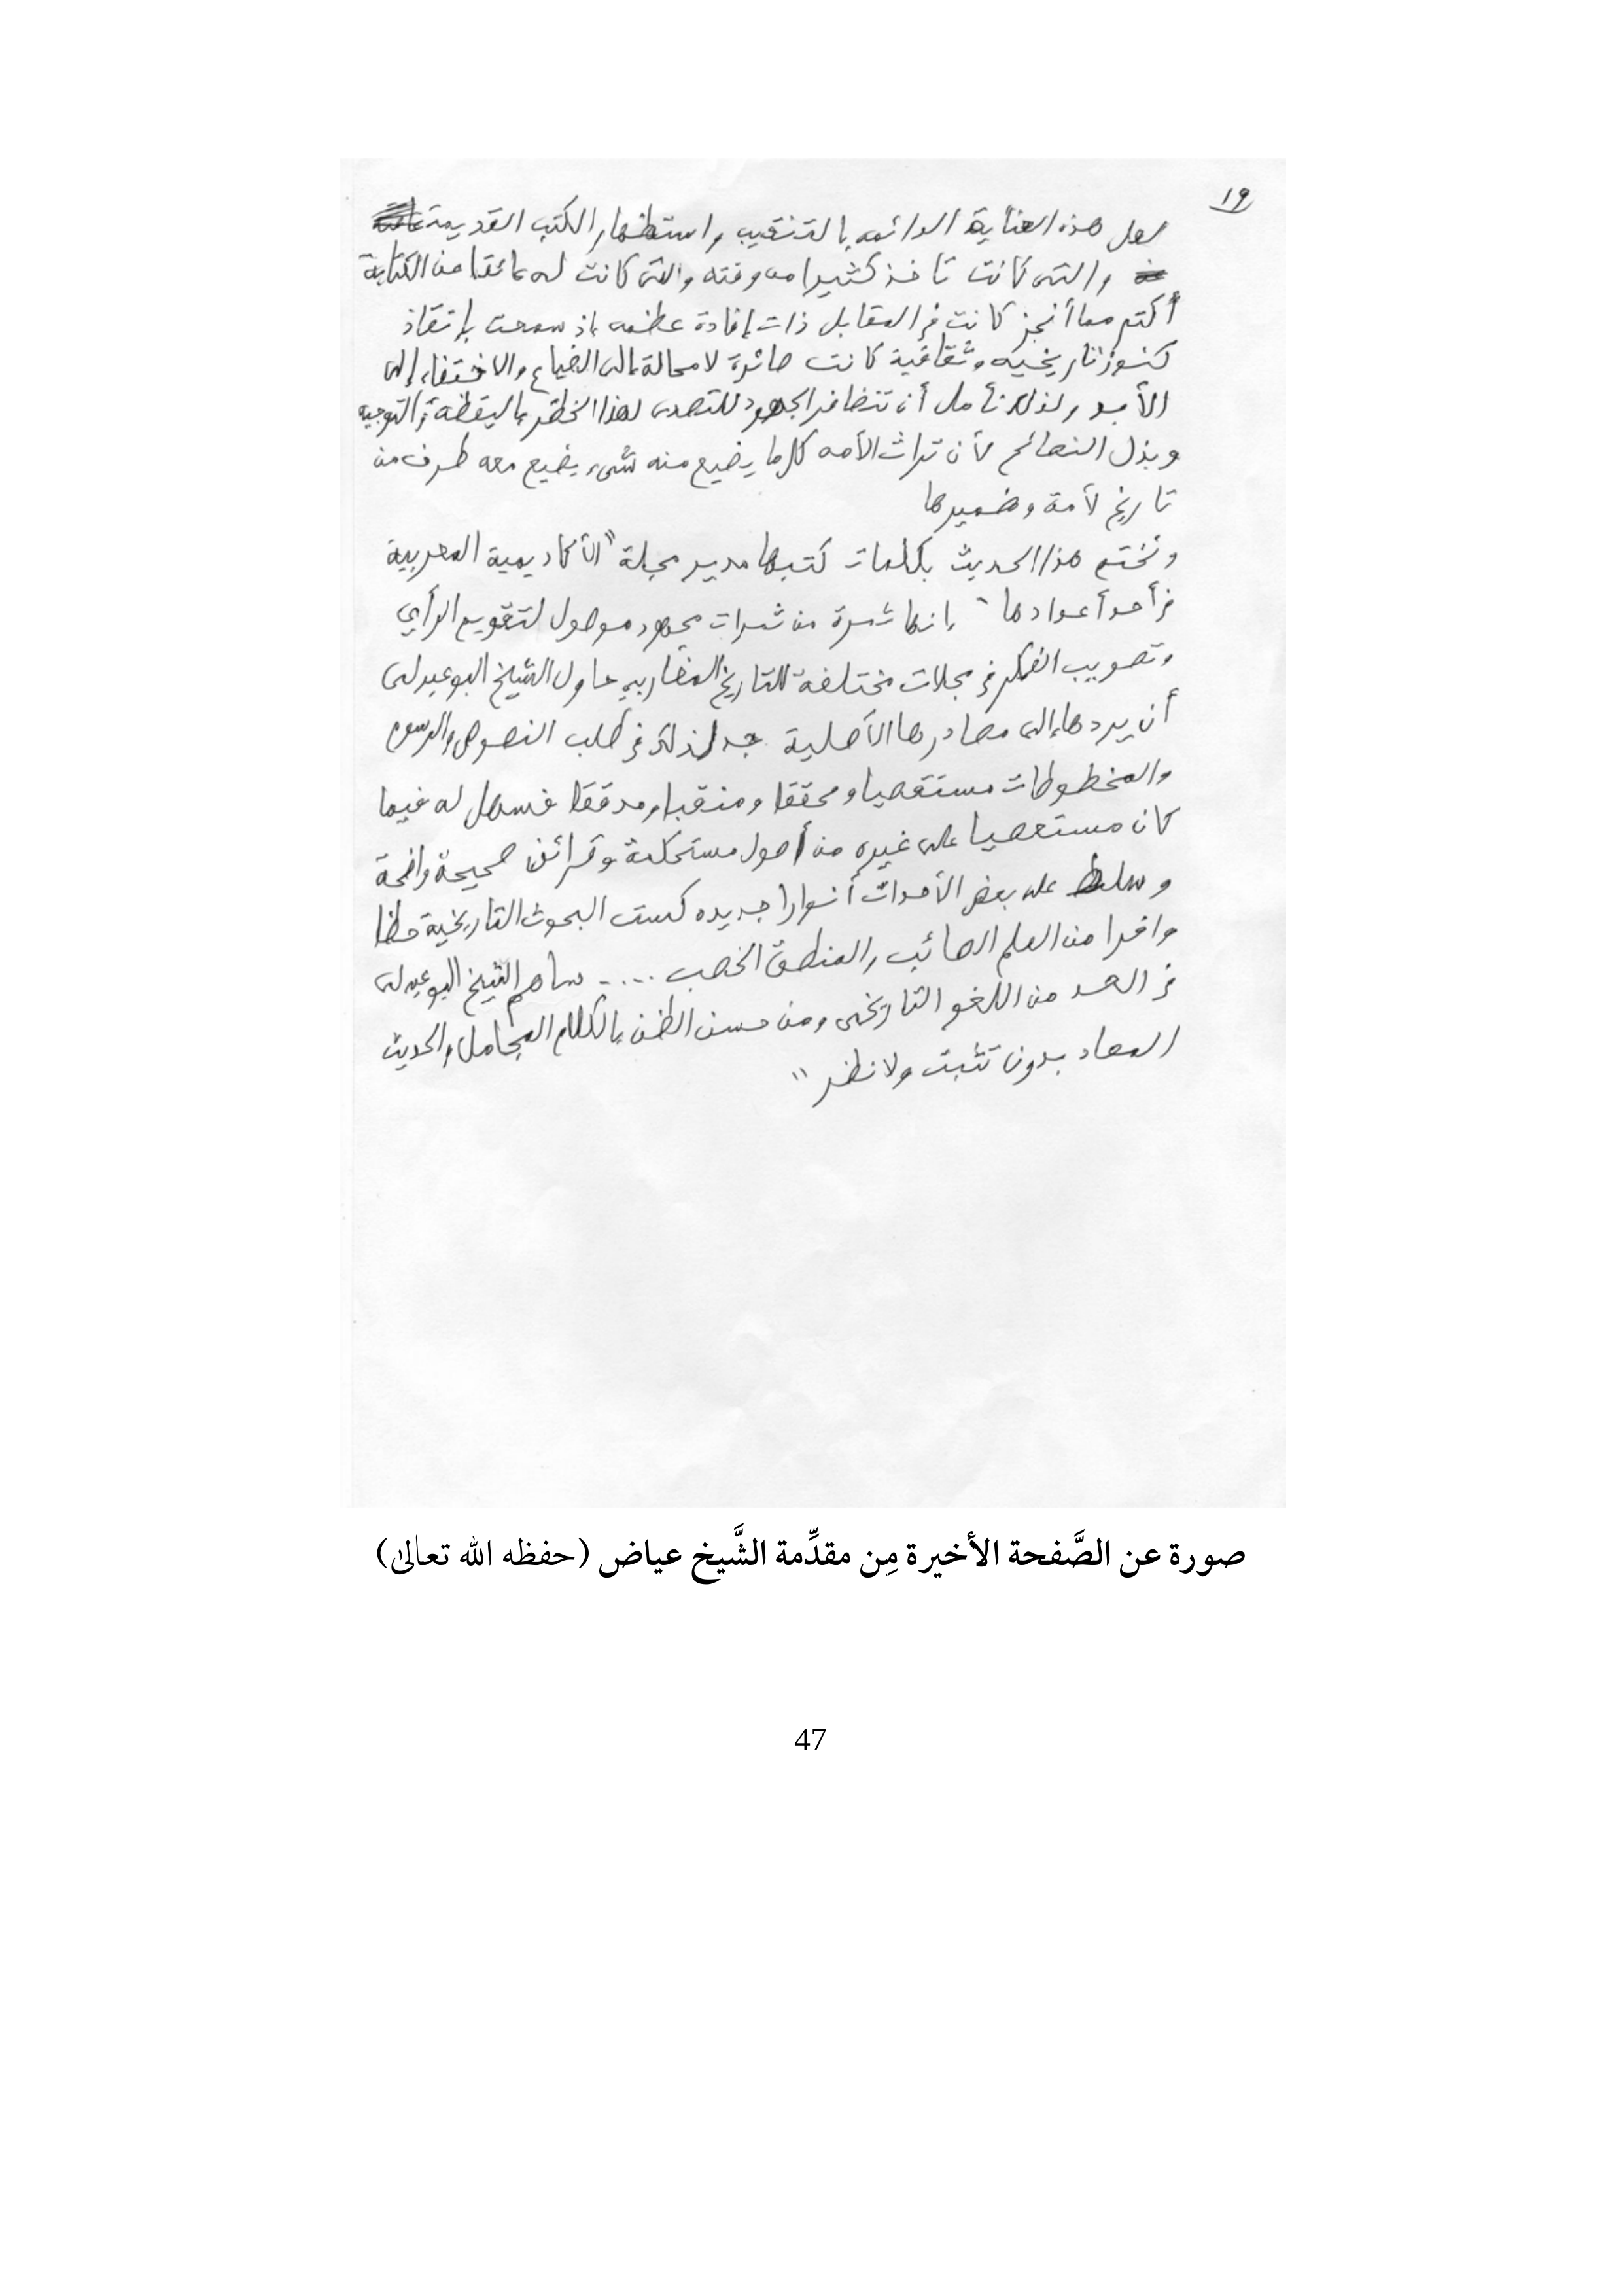 19
لعل هذه العناية الدائمه بالتنقيب واستظهار الكتب القديمة
والتى كانت تاخذ كثيرا من وقته والتى كانت له عائقا من الكتابة
أكثر مما أنجز كانت في المقابل ذات إفادة عظيمه إذ سمحت بإنقاذ
كنوز تاريخيه وثقافية كانت صائرة لا محالة إلى الضياع والاختفاء إلى
الأبد ولذلك نأمل أن تتظافر الجهود للتصدى لهذا الخطر باليقظة والتوجيه
وبذل النصائح لأن تراث الأمه كلما يضيع منه شىء يضيع معه طرف من
تاريخ لأمة وضميرها
ونختم هذا الحديث بكلمات كتبها مدير مجلة "الأكاديمية المغربية
في أحد أعدادها " إنها ثمرة من ثمرات مجهود موصول لتقويم الرأي
وتصويب الفكر في مجلات مختلفة للتاريخ المغاربي حاول الشيخ البوعبدلى
أن يردها إلى مصادرها الأصلية جد لذلك في طلب النصوص والرسوم
والمخطوطات مستقصيا ومحققا ومنقبا ومدققا فسهل له فيما
كان مستعصيا على غيره من أصول مستحكمة وقرائن صحيحة واضحة
وسلط على بعض الأحداث أنوارا جديده كست البحوث التاريخية حظا
وافرا من العلم الصائب والمنطق الخصب ..... ساهم الشيخ البوعبدلى
في الحد من اللغو التاريخى ومن حسن الظن بالكلام المجامل والحديث
المعاد بدون تثبت ولا نظر "
صورة عن الصَّفحة الأخيرة مِن مقدِّمة الشَّيخ عياض (حفظه الله تعالى)
47